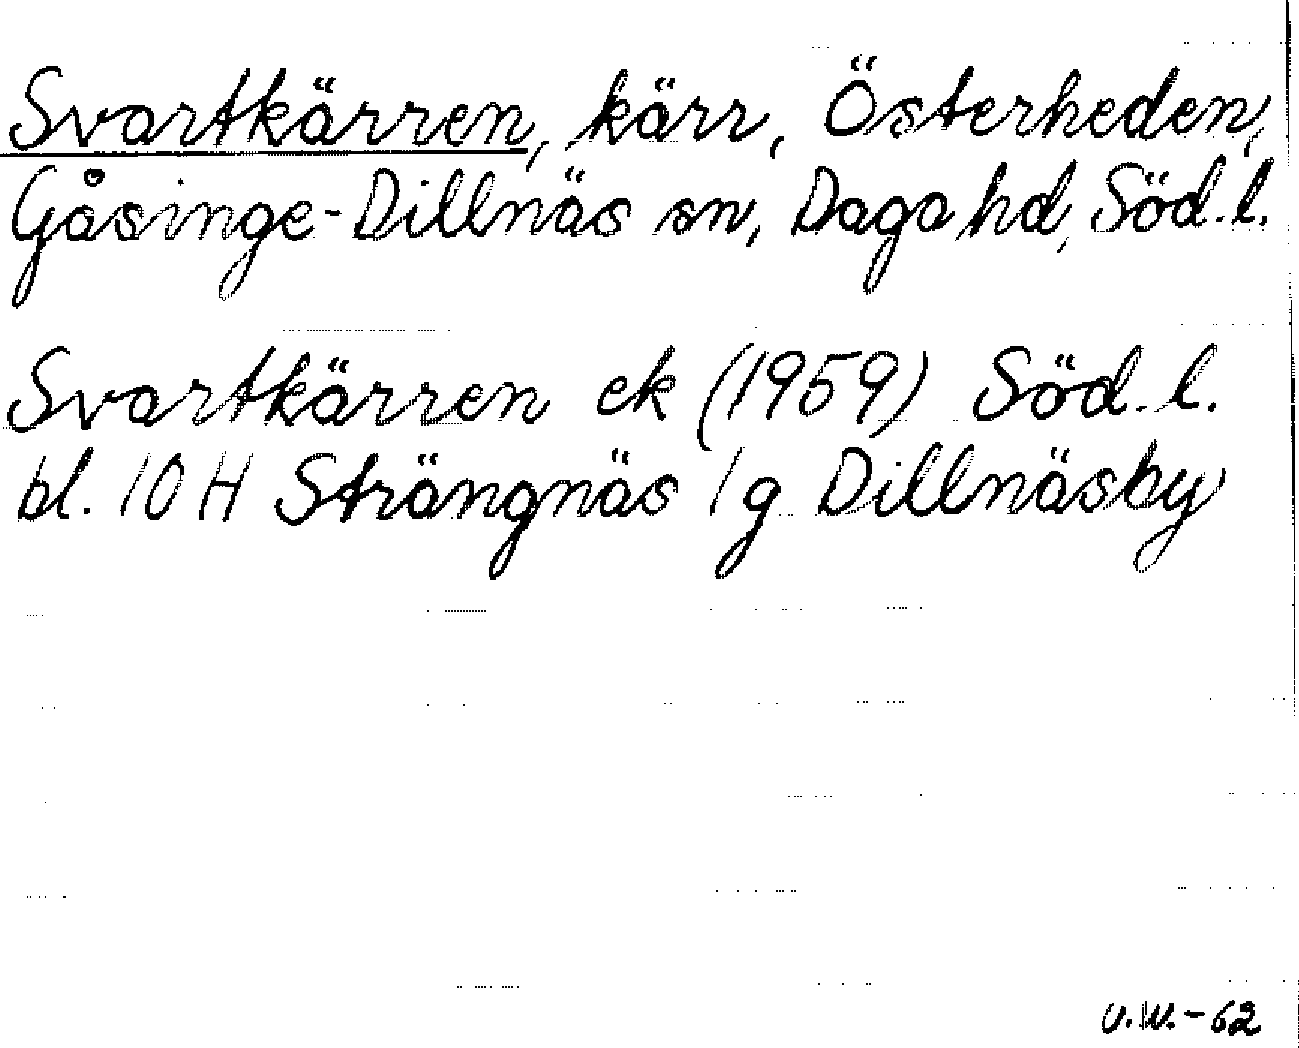 Svartkärren, kärr, Österheden,
Gåsinge-Dillnäs sn, Daga hd, Söd. l.
Svartkärren ek (1959) Söd. l.
bl. 10 H Strängnäs 1 g Dillnäsby
U.W.-62